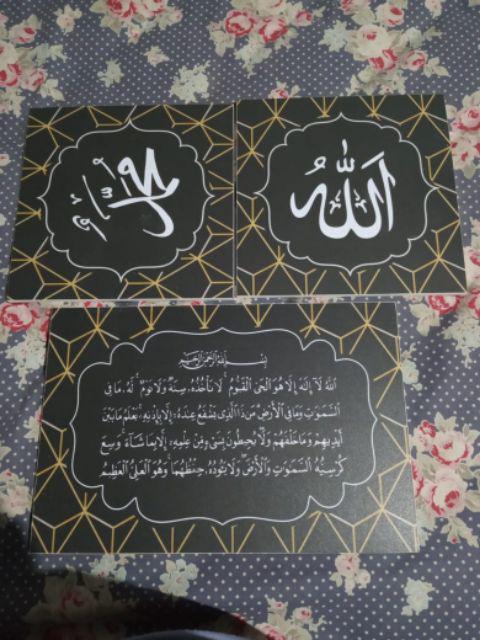 الله
محمد
بِسْمِ اللَّهِ الرَّحْمَنِ الرَّحِيمِ
اللَّهُ لَا إِلَٰهَ إِلَّا هُوَ الْحَيُّ الْقَيُّومُ لَا تَأْخُذُهُ سِنَةٌ وَلَا نَوْمٌ لَهُ مَا فِي
السَّمَٰوَٰتِ وَمَا فِي الْأَرْضِ مَن ذَا الَّذِي يَشْفَعُ عِندَهُ إِلَّا بِإِذْنِهِ يَعْلَمُ مَا بَيْنَ
أَيْدِيهِمْ وَمَا خَلْفَهُمْ وَلَا يُحِيطُونَ بِشَيْءٍ مِّنْ عِلْمِهِ إِلَّا بِمَا شَاءَ وَسِعَ
كُرْسِيُّهُ السَّمَٰوَٰتِ وَالْأَرْضَ وَلَا يَئُودُهُ حِفْظُهُمَا وَهُوَ الْعَلِيُّ الْعَظِيمُ